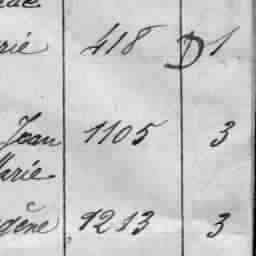 rie 418 D 1
Jean 1105 3
Marie
gène 1213 3